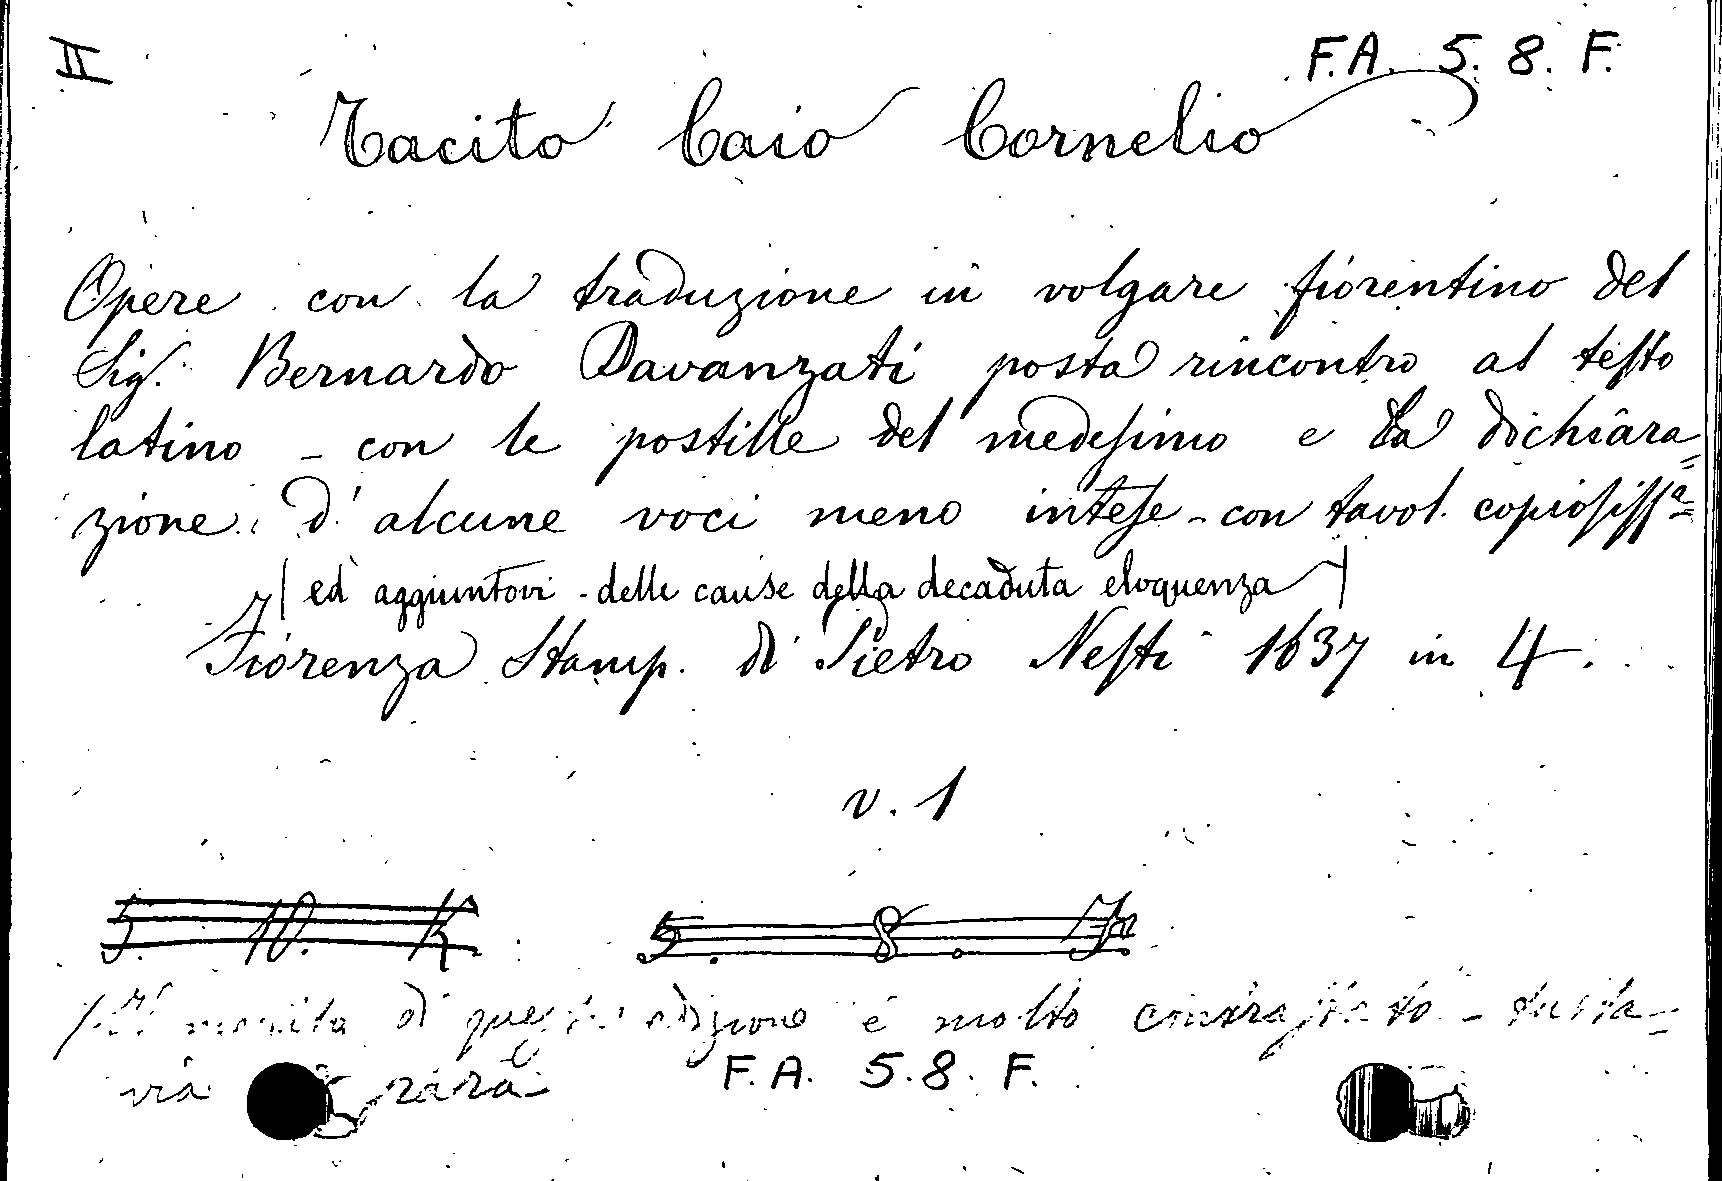 II
F.A. 5. 8. F.
Tacito Caio Cornelio
Opere con la traduzione in volgare fiorentino del
Sig. Bernardo Davanzati posta rincontro al testo
latino - con le postille del medesimo e la dichiara=
zione d'alcune voci meno intese - con tavol. copiosissª
( ed aggiuntovi - delle cause della decaduta eloquenza )
Fiorenza Stamp. di Pietro Nesti 1637 in 4.
v. 1
5. 10. K
5. 8. F
di edizione è molto contrastato - tutta=
via rara -
F.A. 5.8. F.